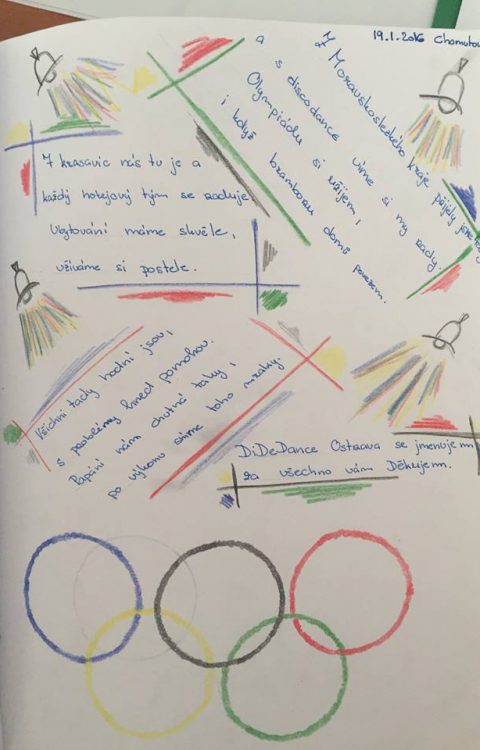 19.1.2016 Chomutov
Z Moravskoslezského kraje přijely jsme
a s discodance víme si my rady.
Olympiádu si užijem,
i když bramboru domů povezem.
7 krasavic nás tu je a
každý hotejový tým se raduje
Ubytování máme skvěle,
užíváme si postele.
Všichni tady hodní jsou,
s problémy hned pomohou.
Papání nám chutná taky,
po výkonu sníme toho mraky.
DiDeDance Ostrava se jmenujem
za všechno vám Děkujem.